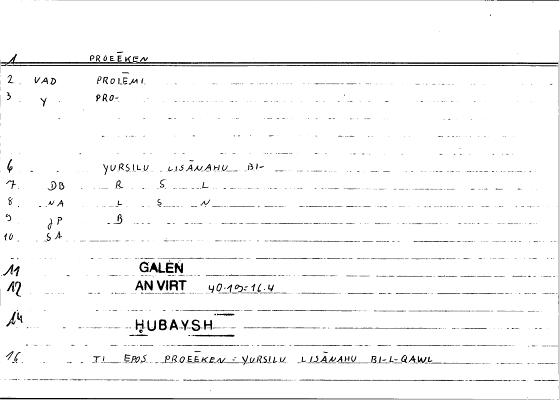 1 PROEĒKEN
2 VAD PROIĒMI
3 Y PRO-
6 YURSILU LISĀNAHU BI-
7 DB R S L
8 NA L S N
9 JP B
10 SA
11 GALEN
12 AN VIRT 40.19=16.4
14 ḤUBAYSH
16 TI EPOS PROEĒKEN = YURSILU LISĀNAHU BI-L-QAWL